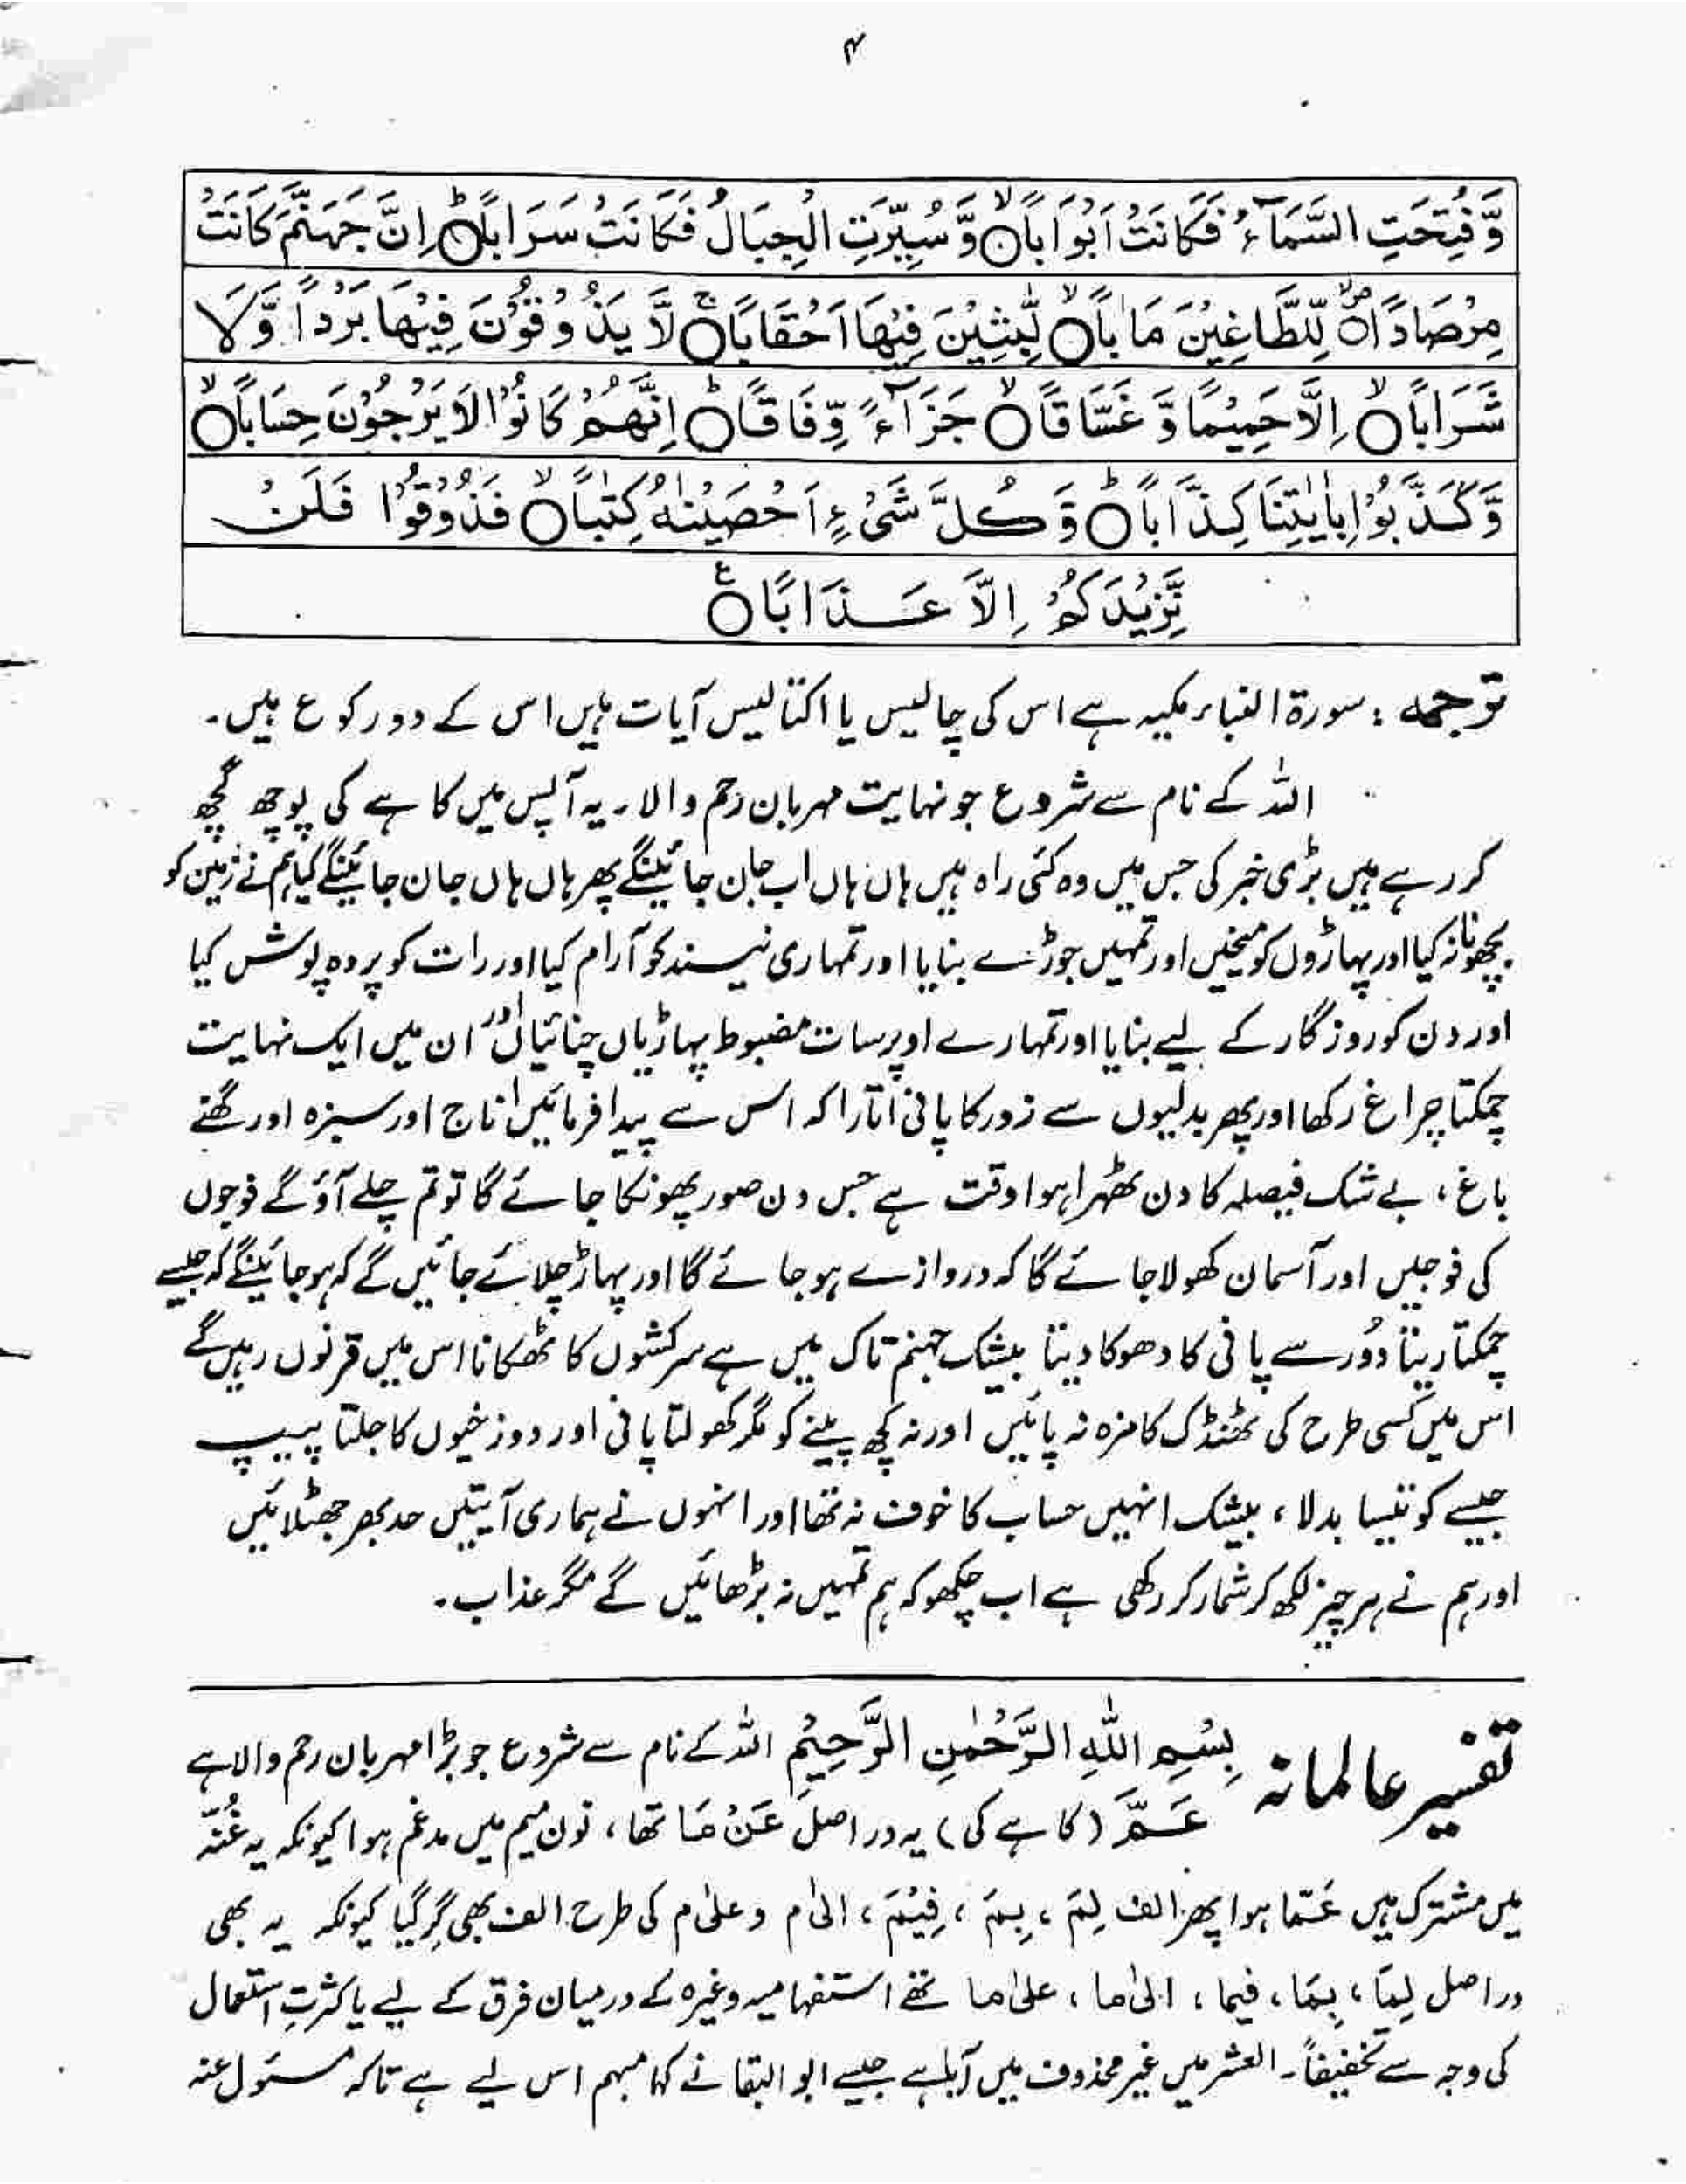 ۴
وَّفُتِحَتِ السَّمَآءُ فَكَانَتْ اَبْوَابًا۝ۙ وَّسُيِّرَتِ الْجِبَالُ فَكَانَتْ سَرَابًا۝ؕ اِنَّ جَهَنَّمَ كَانَتْ
مِرْصَادًا۝ۙ لِّلطَّاغِيْنَ مَاٰبًا۝ۙ لّٰبِثِيْنَ فِيْهَا اَحْقَابًا۝ۚ لَا يَذُوْقُوْنَ فِيْهَا بَرْدًا وَّلَا
شَرَابًا۝ۙ اِلَّا حَمِيْمًا وَّ غَسَّاقًا۝ۙ جَزَآءً وِّفَاقًا۝ؕ اِنَّهُمْ كَانُوْا لَا يَرْجُوْنَ حِسَابًا۝ۙ
وَّكَذَّبُوْا بِاٰيٰتِنَا كِذَّابًا۝ؕ وَكُلَّ شَیْءٍ اَحْصَيْنٰهُ كِتٰبًا۝ۙ فَذُوْقُوْا فَلَنْ
نَّزِيْدَكُمْ اِلَّا عَذَابًا۝ع
ترجمہ : سورۃ النباء مکیہ ہے اس کی چالیس یا اکتالیس آیات ہیں اس کے دو رکوع ہیں۔
اللہ کے نام سے شروع جو نہایت مہربان رحم والا۔ یہ آپس میں کاہے کی پوچھ گچھ
کر رہے ہیں بڑی خبر کی جس میں وہ کئی راہ ہیں ہاں ہاں اب جان جائینگے پھر ہاں ہاں جان جائینگے کیا ہم نے زمین کو
بچھونا نہ کیا اور پہاڑوں کو میخیں اور تمہیں جوڑے بنایا اور تمہاری نیند کو آرام کیا اور رات کو پردہ پوش کیا
اور دن کو روزگار کے لیے بنایا اور تمہارے اوپر سات مضبوط پہاڑیاں چنائیاں اور ان میں ایک نہایت
چمکتا چراغ رکھا اور پھر بدلیوں سے زور کا پانی اتارا کہ اس سے پیدا فرمائیں اناج اور سبزہ اور گھنے
باغ، بے شک فیصلہ کا دن ٹھہرا ہوا وقت ہے جس دن صور پھونکا جائے گا تو تم چلے آؤ گے فوجوں
کی فوجیں اور آسمان کھولا جائے گا کہ دروازے ہو جائے گا اور پہاڑ چلائے جائیں گے کہ ہو جائینگے کہ جیسے
چمکتا ریتا دُور سے پانی کا دھوکا دیتا بیشک جہنم تاک میں ہے سرکشوں کا ٹھکانا اس میں قرنوں رہیں گے
اس میں کسی طرح کی ٹھنڈک کا مزہ نہ پائیں اور نہ کچھ پینے کو مگر کھولتا پانی اور دوزخیوں کا جلتا پیپ
جیسے کو تیسا بدلا، بیشک انہیں حساب کا خوف نہ تھا اور انہوں نے ہماری آیتیں حد بھر جھٹلائیں
اور ہم نے ہر چیز لکھ کر شمار کر رکھی ہے اب چکھو کہ ہم تمہیں نہ بڑھائیں گے مگر عذاب۔
تفسیر عالمانہ بِسْمِ اللّٰهِ الرَّحْمٰنِ الرَّحِيْمِ اللہ کے نام سے شروع جو بڑا مہربان رحم والا ہے
عَـمَّ (کاہے کی) یہ دراصل عَنْ مَا تھا، نون میم میں مدغم ہوا کیونکہ یہ غُنّہ
میں مشترک ہیں عَمَّا ہوا پھر الف لِمَ، بِمَ، فِیْمَ، الیٰ م و علیٰ م کی طرح الف بھی گِر گیا کیونکہ یہ بھی
دراصل لِمَا، بِمَا، فیما، الیٰ ما، علیٰ ما تھے استفہامیہ وغیرہ کے درمیان فرق کے لیے یا کثرتِ استعمال
کی وجہ سے تخفیفاً۔ العشر میں غیر محذوف میں آیا ہے جیسے ابو البقا نے کہا مبہم اس لیے ہے تاکہ مسئول عنہ